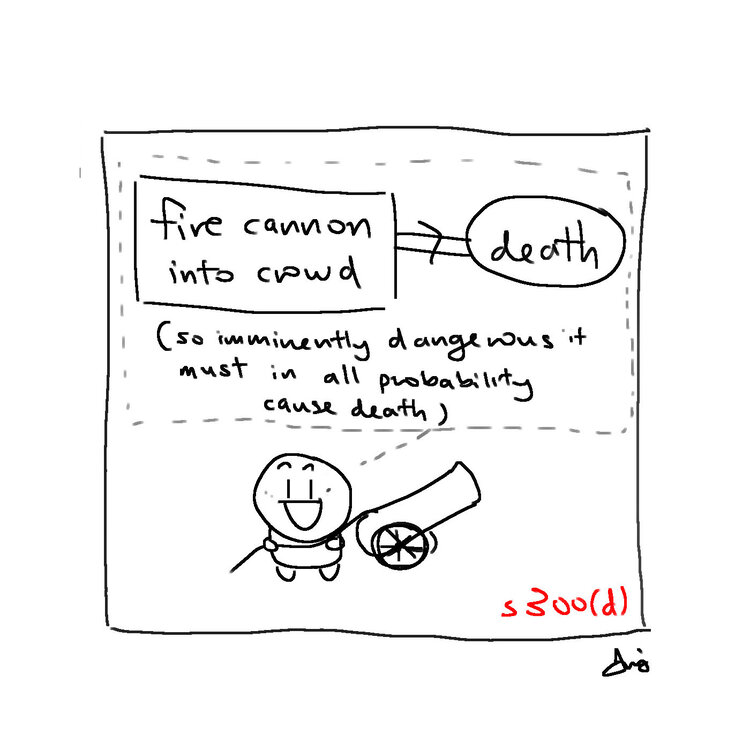 fire cannon
into crowd
death
(so imminently dangerous it
must in all probability
cause death)
s300(d)